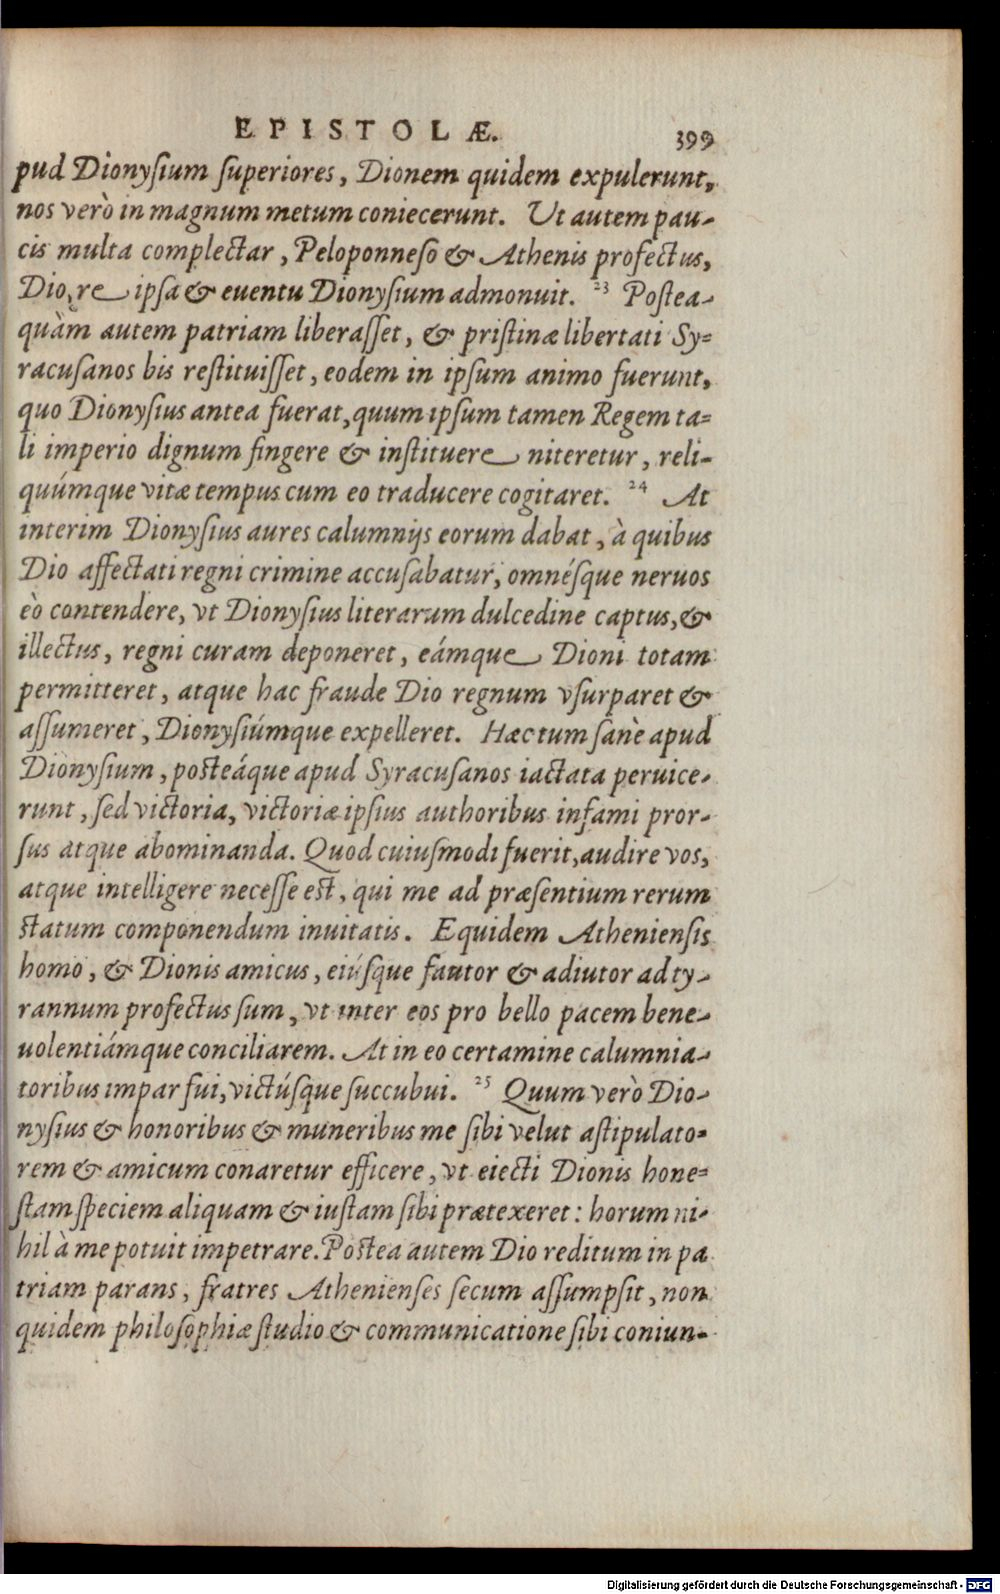 EPISTOLÆ. 399
pud Dionysium superiores, Dionem quidem expulerunt,
nos verò in magnum metum coniecerunt. Ut autem pau-
cis multa complectar, Peloponneso & Athenis profectus,
Dio, re ipsa & euentu Dionysium admonuit. 23 Postea-
quàm autem patriam liberasset, & pristinæ libertati Sy-
racusanos bis restituisset, eodem in ipsum animo fuerunt,
quo Dionysius antea fuerat, quum ipsum tamen Regem ta-
li imperio dignum fingere & instituere niteretur, reli-
quúmque vitæ tempus cum eo traducere cogitaret. 24 At
interim Dionysius aures calumnijs eorum dabat, à quibus
Dio affectati regni crimine accusabatur, omnésque neruos
eò contendere, vt Dionysius literarum dulcedine captus, &
illectus, regni curam deponeret, eámque Dioni totam
permitteret, atque hac fraude Dio regnum vsurparet &
assumeret, Dionysiúmque expelleret. Hæc tum sanè apud
Dionysium, posteáque apud Syracusanos iactata peruice-
runt, sed victoria, victoriæ ipsius authoribus infami pror-
sus atque abominanda. Quod cuiusmodi fuerit, audire vos,
atque intelligere necesse est, qui me ad præsentium rerum
statum componendum inuitatis. Equidem Atheniensis
homo, & Dionis amicus, eiúsque fautor & adiutor ad ty-
rannum profectus sum, vt inter eos pro bello pacem bene-
uolentiámque conciliarem. At in eo certamine calumnia-
toribus impar fui, victúsque succubui. 25 Quum verò Dio-
nysius & honoribus & muneribus me sibi velut astipulato-
rem & amicum conaretur efficere, vt eiecti Dionis hone-
stam speciem aliquam & iustam sibi prætexeret: horum ni-
hil à me potuit impetrare. Postea autem Dio reditum in pa
triam parans, fratres Athenienses secum assumpsit, non
quidem philosophiæ studio & communicatione sibi coniun-
Digitalisierung gefördert durch die Deutsche Forschungsgemeinschaft - DFG